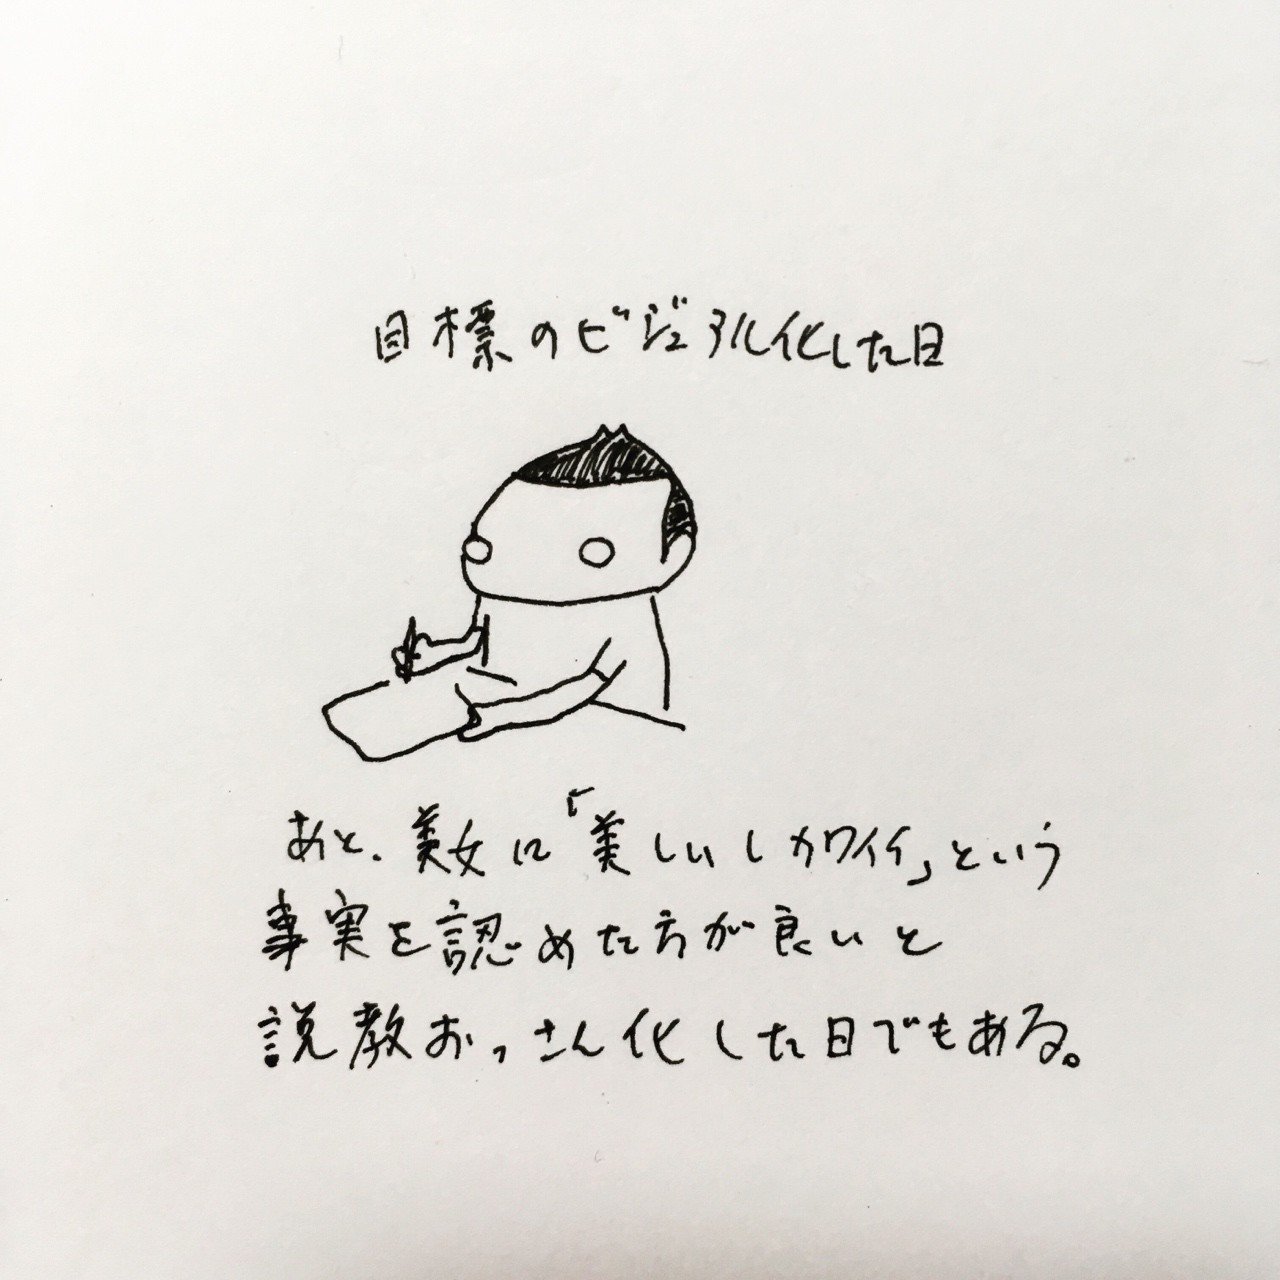 目標のビジュアル化した日
あと、美女に「美しいしカワイイ」という
事実を認めた方が良いと
説教おっさん化した日でもある。